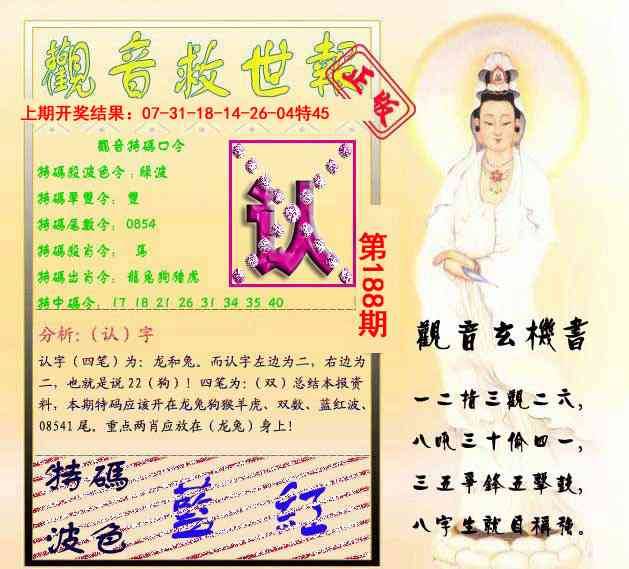 觀音救世報
正版
上期开奖结果：07-31-18-14-26-04特45
觀音特碼口令
特碼殺波色令：綠波
特碼單雙令：雙
特碼尾數令：0854
特碼殺肖令：馬
特碼出肖令：龍兔狗猪虎
特中碼令：17 18 21 26 31 34 35 40
认
第188期
分析:（认）字
认字（四笔）为：龙和兔。而认字左边为二，右边为
二，也就是说22（狗）！四笔为：（双）总结本报资
料，本期特码应该开在龙兔狗猴羊虎、双数、蓝红波、
08541尾。重点两肖应放在（龙兔）身上！
特碼
波色
藍 紅
觀音玄機書
一二指三觀二六，
八吼三十偷四一，
三五爭鋒五擊鼓，
八字生就自稱強。